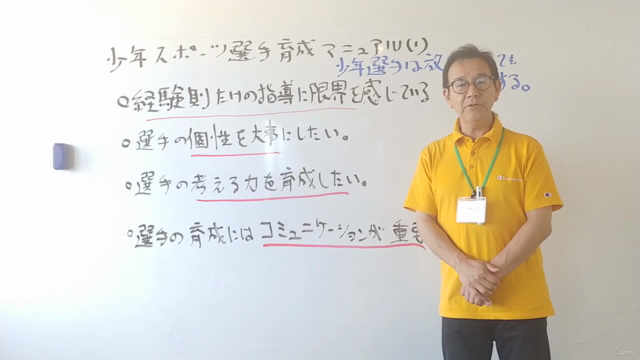 少年スポーツ選手育成マニュアル(1)
少年選手は放 ても
する。
○経験則だけの指導に限界を感じている
○選手の個性を大事にしたい。
○選手の考える力を育成したい。
○選手の育成にはコミュニケーションが重要
udemy